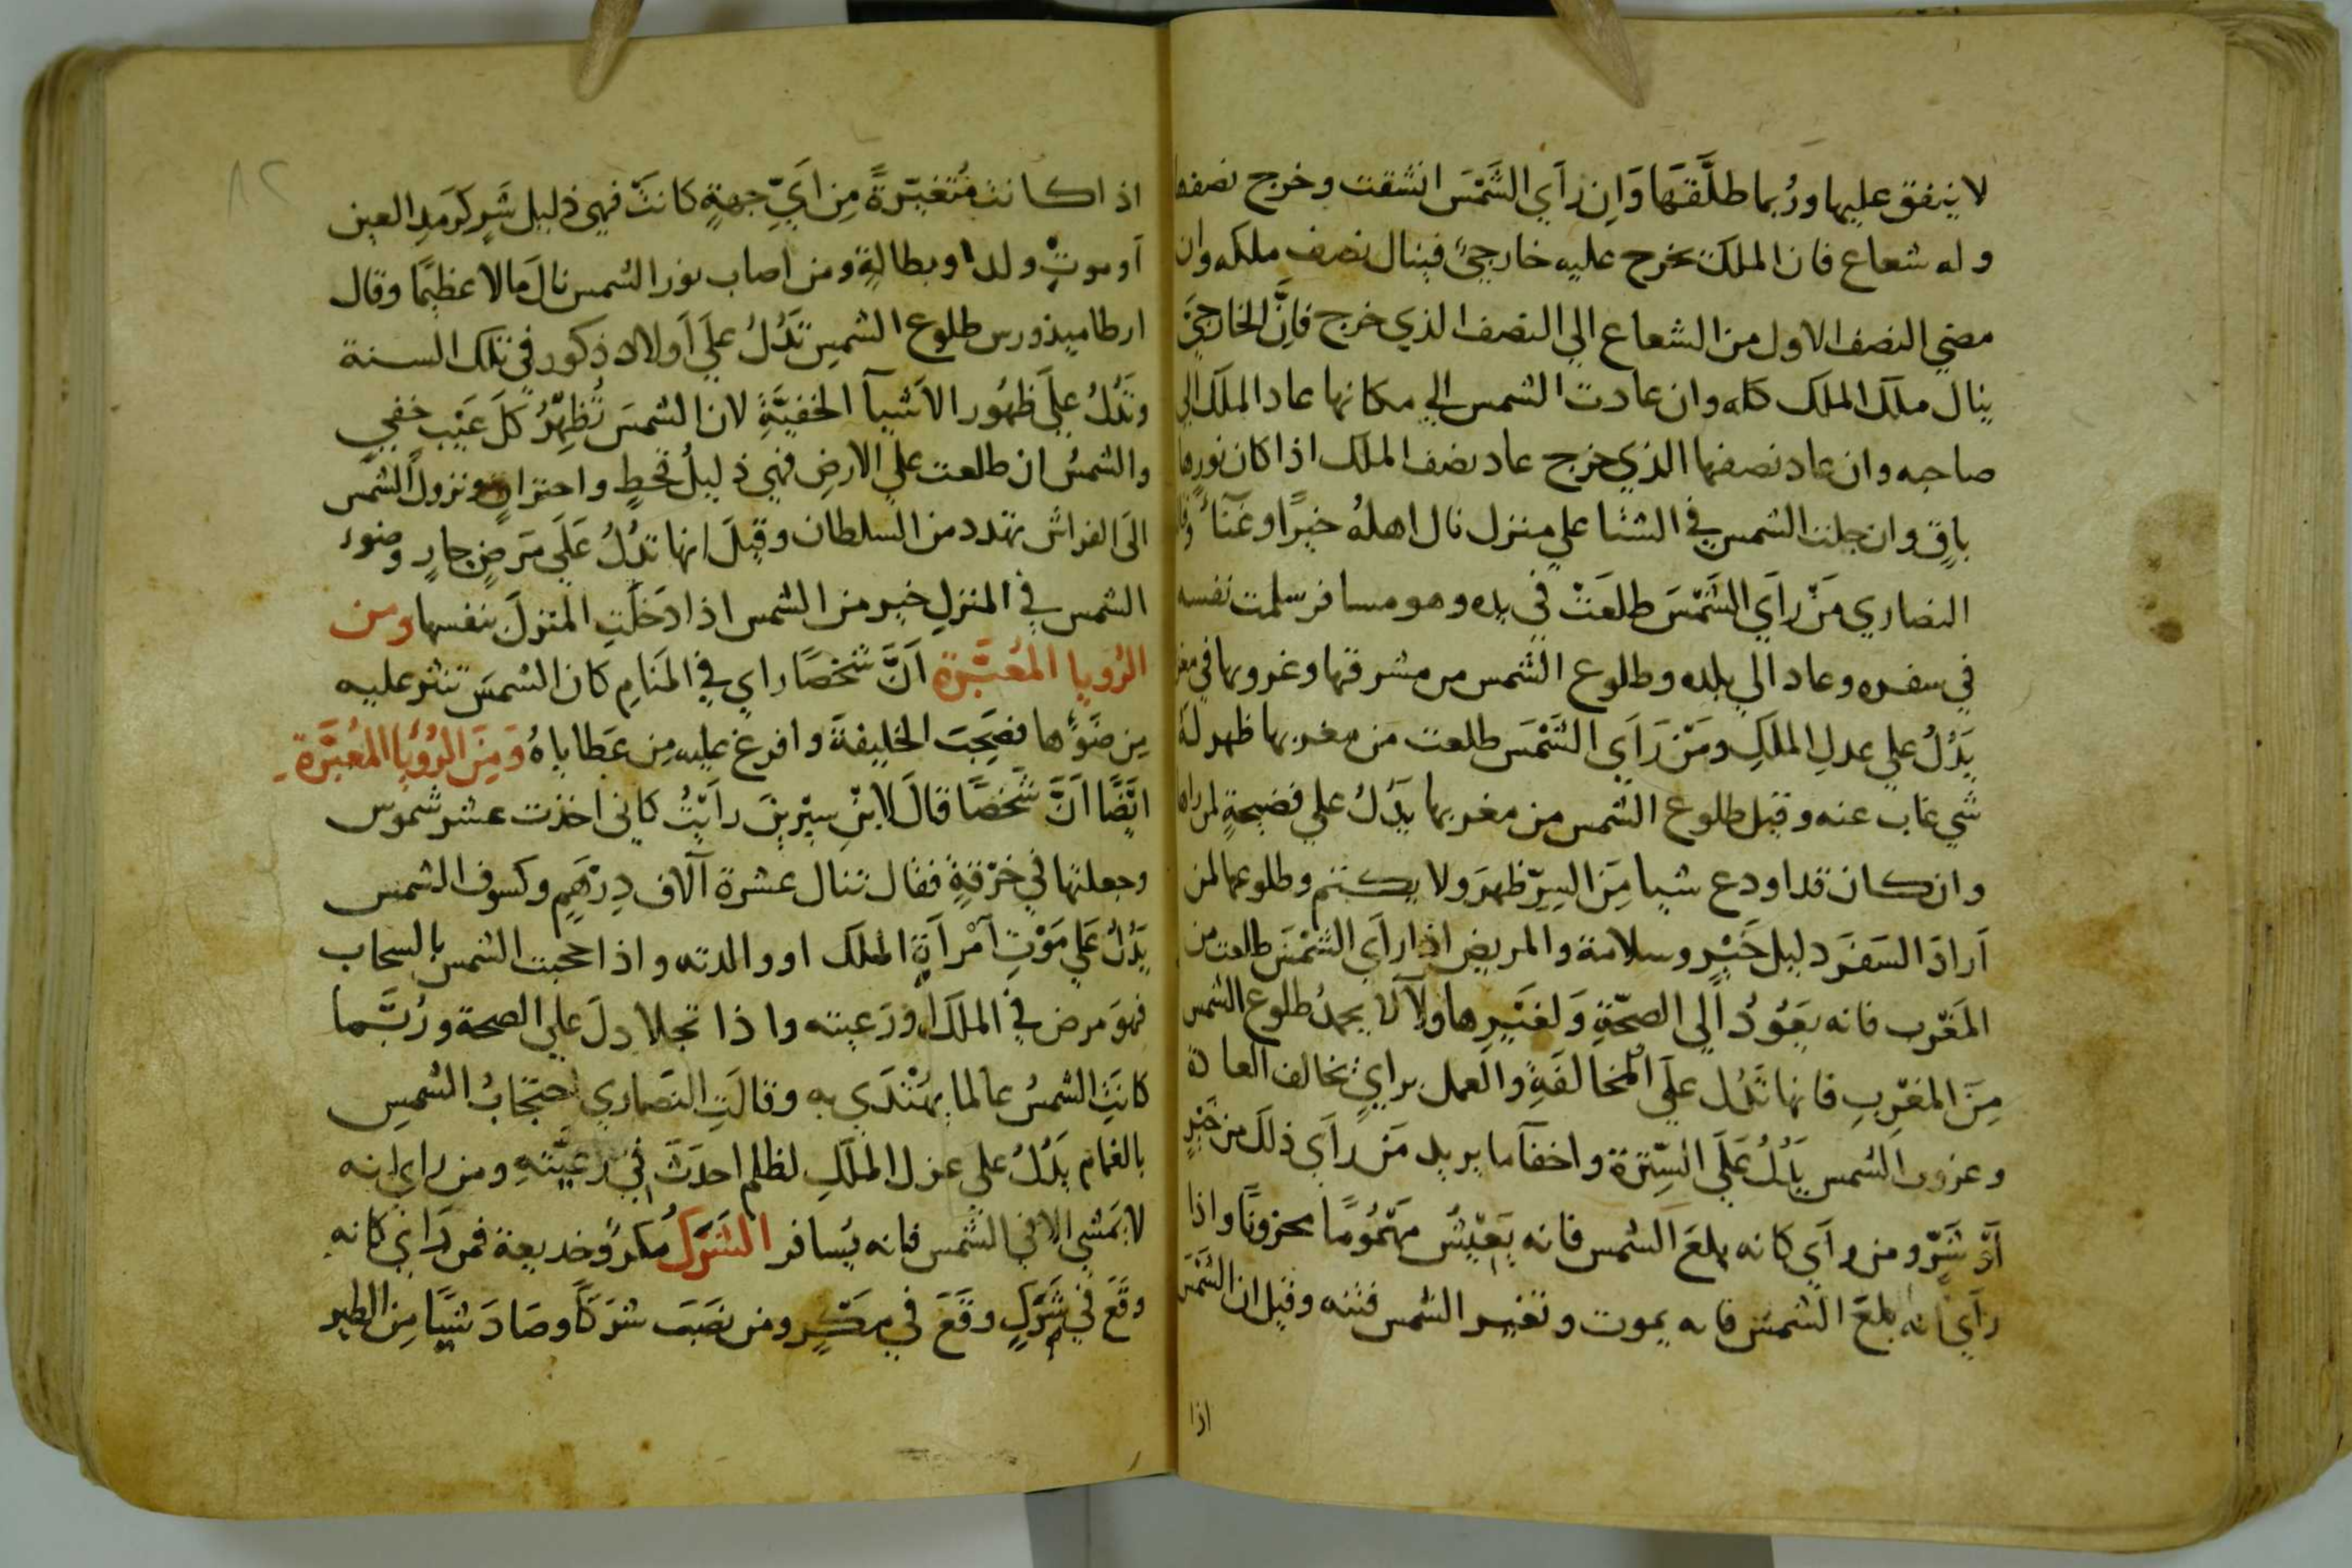 لا ينفق عليها ورُبما طلَّقَهَا وَاِن رَآي الشَّمْسَ انشقت وخرج نصفها
وله شعاع فان الملكَ يخرج عليه خارجيٌ فينال نصف ملكه وان
مضي النصف الاول من الشعاع الي النصف الذي خرج فاِنَّ الخارجيَّ
ينال ملك الملك كله وان عادت الشمس الي مكانها عاد الملك الي
صاحبه وان عاد نصفها الذي خرج عاد نصف الملك اذا كان نورها
باقٍ وان جلت الشمس في الشتا علي منزل نال اهلهُ خيرًا وغَنآءً
النصاري مَنْ رآَي الشَمْسَ طلعَتْ في يده وهو مسافر سلمت نفسه
في سفره وعاد الي بلده وطلوع الشمس من مشرقها وغروبها في
يَدُلُ علي عدلِ الملكِ ومَنْ رَآَي الشَمْسَ طلعت من مغربها ظهر لهَ
شي غاب عنه وقيل طلوع الشمس من مغربها يَدُلُ علي فضيحةٍ لمن راه
وان كان قد اودع شيا مِنَ السِرّ ظهرَ ولا يكتتم وطلوعها لمن
اَرادَ السَفرَ دليل خَيْرٍ وسلامة والمريض اذا رآي الشمْسَ طلعت من
المَغْرب فانه يَعُوُدُ اَلي الصحّةِ وَلغَيْرِها ولا لا يحمدُ طلوع الشمس
مِنَ المغرْبِ فانها تَدُل علَي المُخالفَةِ والعمل براي يخالف العادة
وغروب الشمس يَدُلُ عَلَي السِتْرة واخفآ ما يريد مَن رآَي ذلكَ من خَيْرٍ
اَوْ شَرّ ومن رآي كانه بلعَ الشمس فانه يَعِيْشُ مهَمُوُمًا محزونًا واذا
رآي انه بلعَ الشمسَ فانه يموت وتغير الشمس فتنه وقيل ان الشَمْسَ
اذا
٨٢
اذا كانت مُتَغيّرةً مِن ايَّ جهةٍ كانتْ فهي دليل شَرٍ كرَمَدِ العين
اَو موتِ ولد او بطالةٍ ومن اصاب نور الشمس نالَ مالا عظيمًا وقال
ارطاميذورس طلوع الشمسِ تَدُلُ علَي اَولاد ذكور في تلك السنة
وتَدُلُ علَي ظهُور الاَشيآ الخفيَّةِ لان الشمسَ تُظهِرُ كلَ عَيْب خفي
والشمسُ ان طلعت علي الارضِ فهي دليلُ قحطٍ واحتراقٍ ونزول الشمس
الَى الفراش تهدد من السلطان وقيلَ انها تدُلُ عَلَي مَرضٍ حارٍ وضوء
الشمس في المنزلِ خير من الشمس اذا دَخلَتِ المنزلَ بنفسها ومن
الرُويا المُعبَّرة اَنَّ شخصًا راي في المَنامِ كان الشمسَ تنثر عليه
مِن ضَوْءُها فصَحِبَ الخليفةَ وافرغ عليه مِن عَطاياهُ وَمِنَ الرُوْيا المُعبَّرة
ايَضًا اَنَّ شَخصًا قالَ لابنِ سيْرينَ رأيْتُ كاني اخذت عشر شموس
وجعلتها في خرْقةٍ فقال تنال عشرة آلاف دِرْهَم وكسوف الشمس
يَدُلُ عَلي مَوْتِ آمْرأَةِ الملك او والدته واذا حجبت الشمس بالسحاب
فهوَ مرض في الملك اَو رَعيته واذا تجلا دلَ علي الصحة ورُبَّما
كانَتِ الشمسُ عالما يهَتْدَي به وقالَتِ النَصاري احتجابُ الشمسِ
بالغمام يَدُلُ علي عزل الملَكِ لظلم احدَثَ في رعيَّتهِ ومن راي انه
لا يَمشي الا في الشَمس فانه يُسافر الشَرَك مُكرٌ وخديعة فمن رَاي كانه
وقَعَ في شَرَكٍ وقَعَ في مكَرٍ ومن نصَبَ شَرَكاً وصَادَ شيَئًا مِن الطير